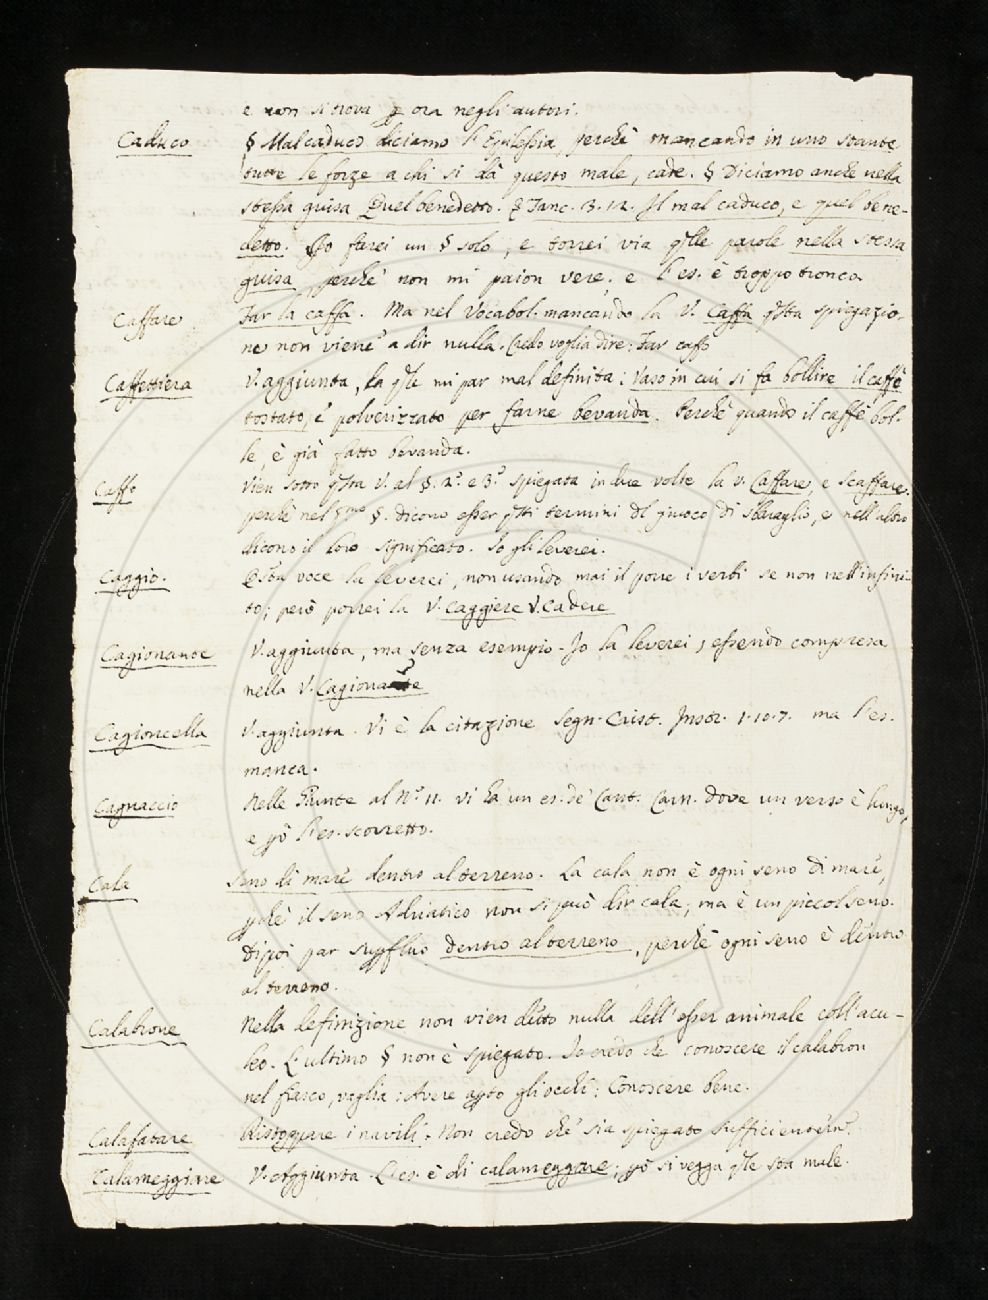 e non si trova p ora negli autori.
Caduco § Mal caduco diciamo l'Epilessia, perchè mancando in uno stante
tutte le forze a chi si dà questo male, cade. § Diciamo anche nella
stessa guisa Quel benedetto. § Tanc. 3. 12. Il mal caduco, e quel bene-
detto. Io farei un § solo, e torrei via qlle parole nella stessa
guisa, perchè non mi paion vere. e l'es. è troppo tronca
Caffare Far la caffa. Ma nel Vocabol. mancando la V. Caffa qsta spiegazio-
ne non viene a dir nulla. Credo voglia dire: Far caffo
Caffettiera V. aggiunta, la qle mi par mal definita: Vaso in cui si fa bollire il caffè
tostato, e polverizzato per farne bevanda. Perchè quando il caffè bol-
le, è già fatto bevanda.
Caffo Vien sotto qsta V. al §. 2.° e 3.° spiegata in due volte la V. Caffare, e scaffare.
perchè nel pmo §. dicono esser qsti termini del giuoco di sbaraglio, e nell'altro
dicono il loro significato. Io gli leverei.
Caggio. Qsta voce la leverei, non usando mai il porre i verbi se non nell'infini-
to; però porrei la V. Caggere V. Cadere
Cagionante V. aggiunta, ma senza esempio. Io la leverei, essendo compresa
nella V. Cagionante
Cagioncella V. aggiunta. Vi è la citazione Segn. Crist. Instr. 1. 10. 7. ma l'es.
manca.
Cagnaccio Nelle Giunte al N.° 11. vi ha un es. de' Cant. Carn. dove un verso è lungo,
e pò l'es. scorretto.
Cala Seno di mare dentro al terreno. La cala non è ogni seno di mare,
pchè il seno Adriatico non si può dir cala; ma è un piccol seno.
Dipoi par supfluo dentro al terreno, perchè ogni seno è dentro
al terreno.
Calabrone Nella definizione non vien detto nulla dell'esser animale coll'acu-
leo. L'ultimo § non è spiegato. Io credo che conoscere il calabron
nel fiasco, voglia: Avere apto gli occhi: Conoscere bene.
Calafatare Ristoppare i navili. Non credo che sia spiegato sufficientem.e
Calameggiare V. Aggiunta. L'es. è di calameggiare; pò si vegga qle sta male.